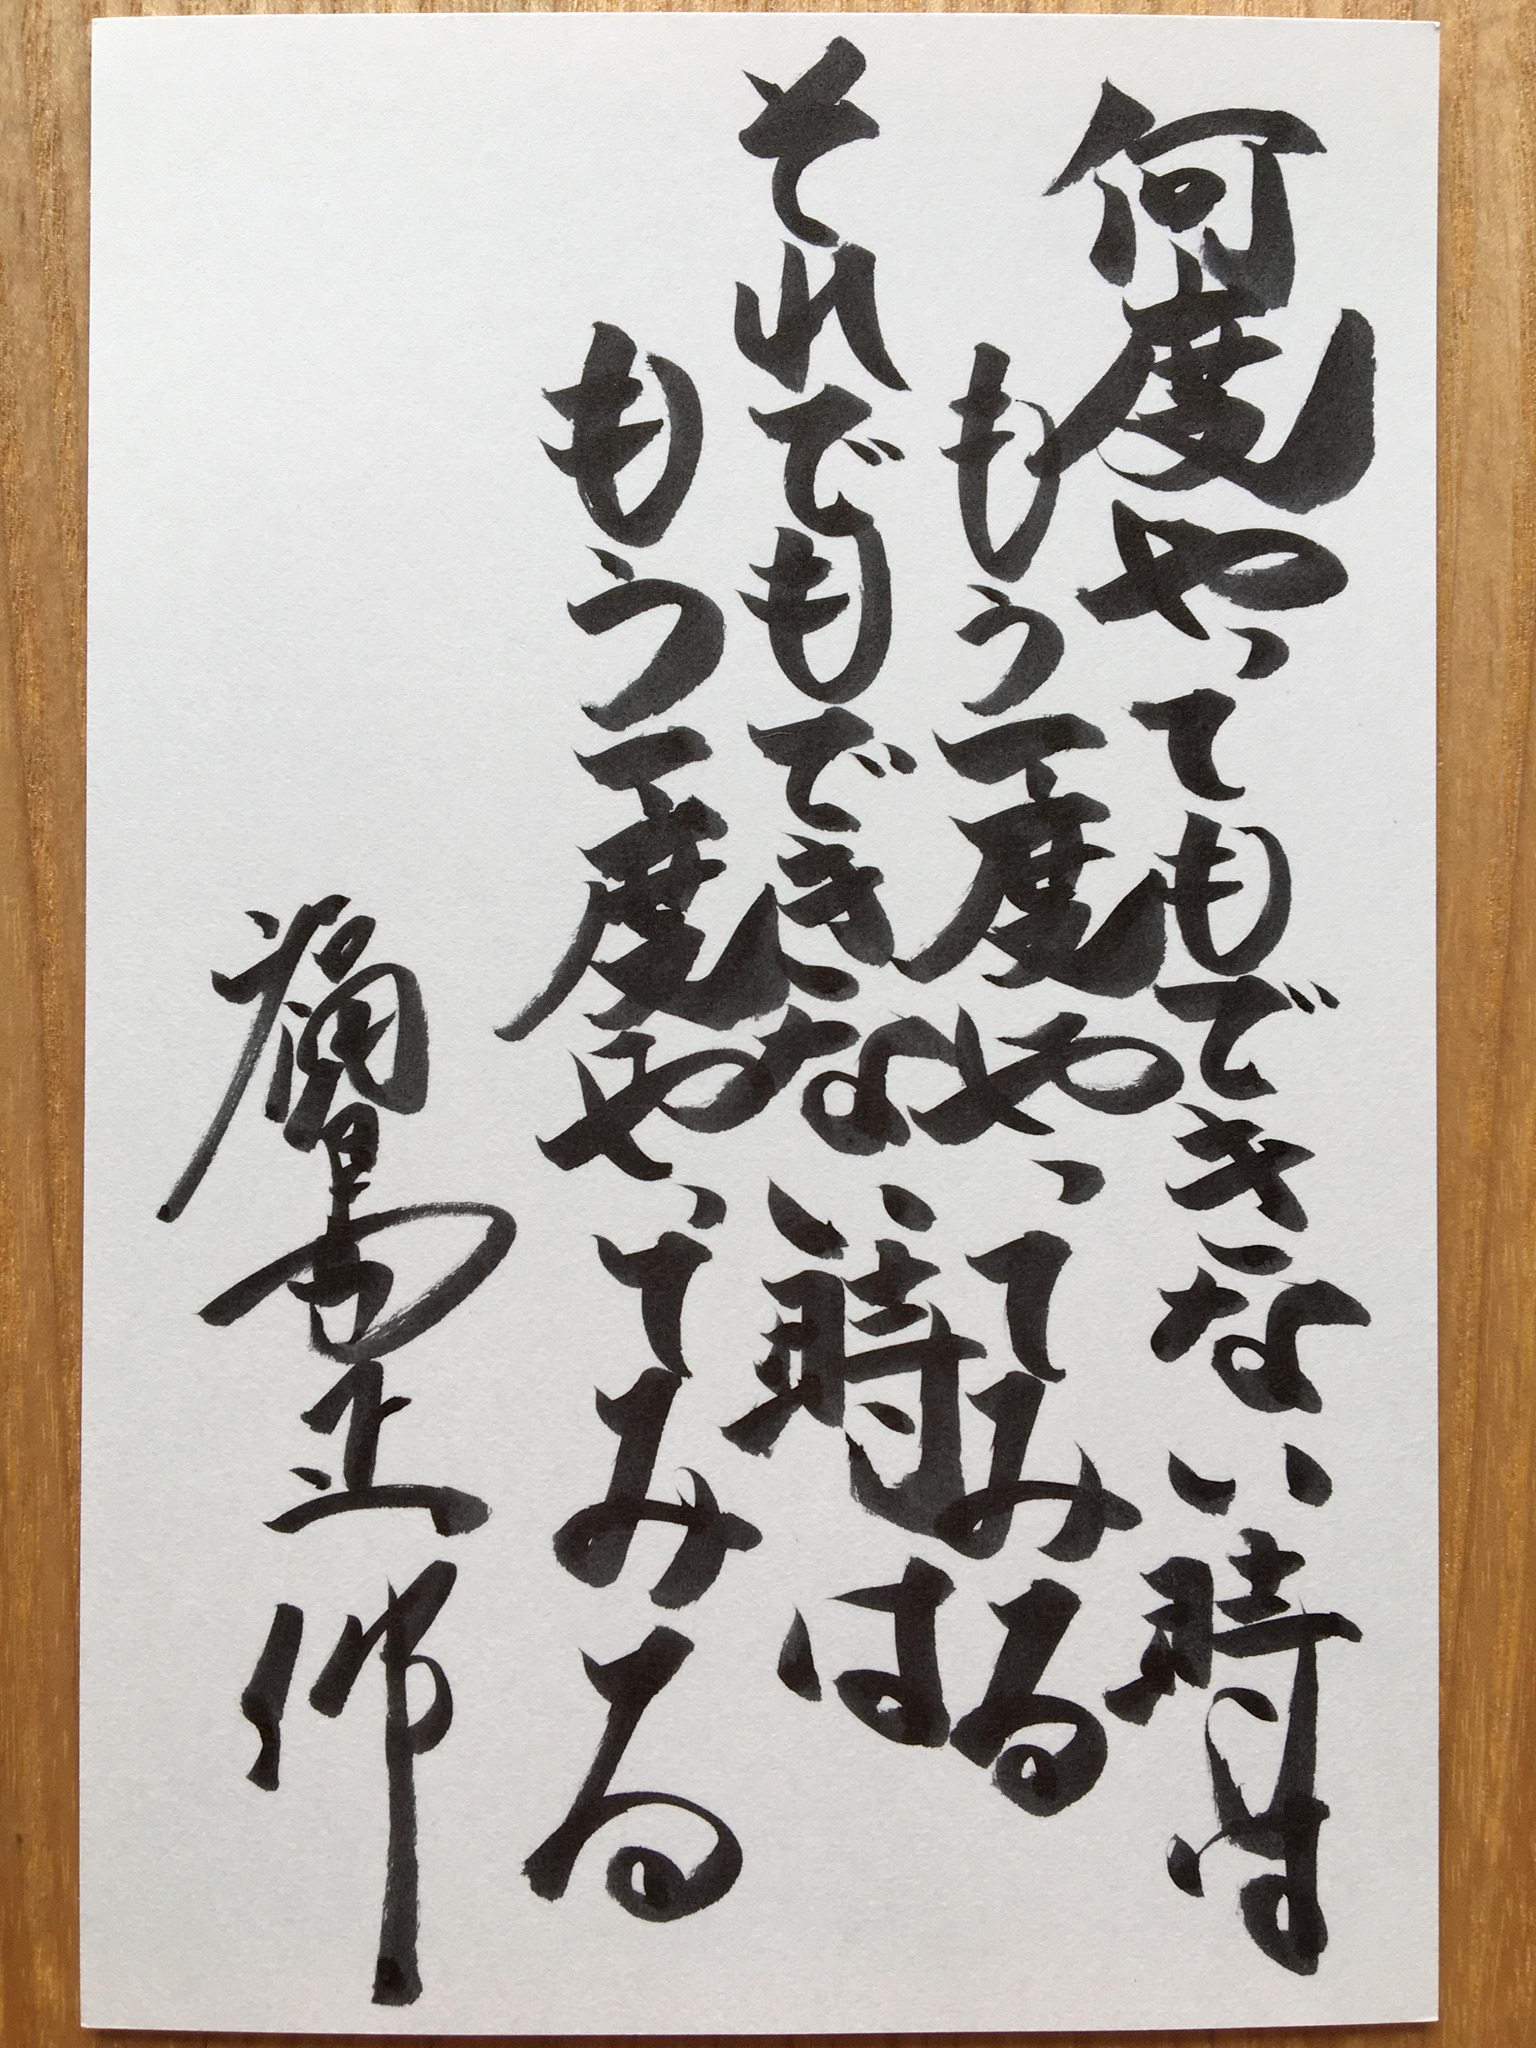 何度やってもできない時は
もう一度やってみる
それでもできない時は
もう一度やってみる